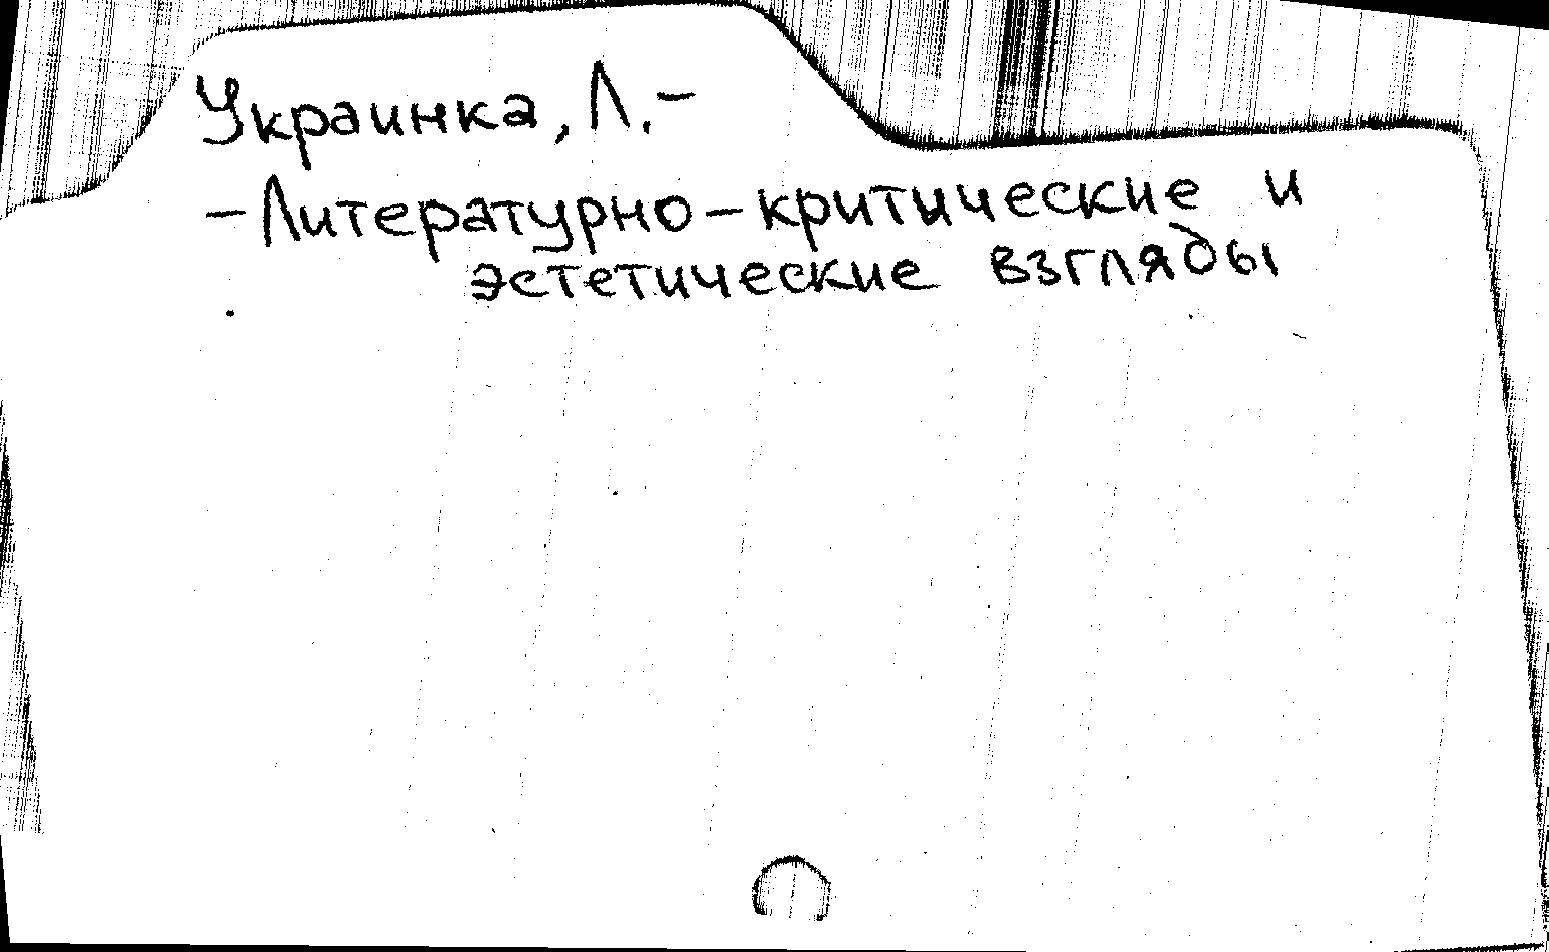 Украинка, Л.–
– Литературно – критические и
эстетические взгляды